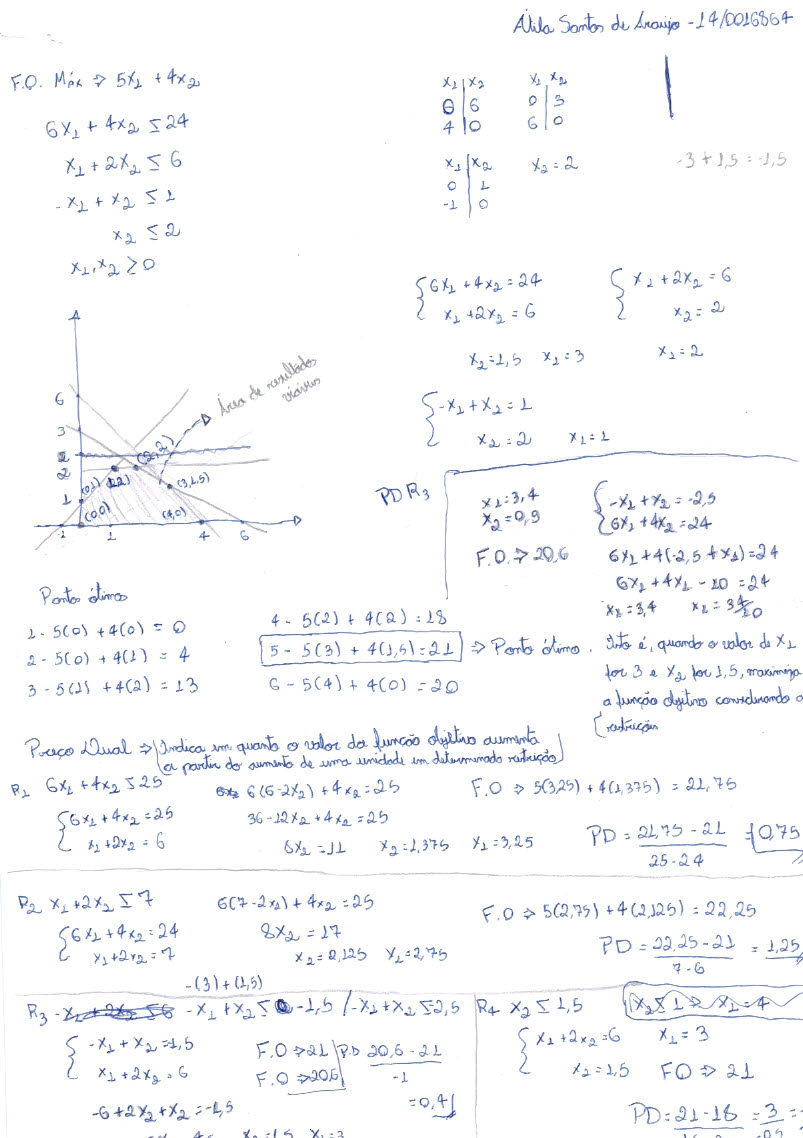 Átila Santos de Araujo - 14/0016864
F.O. Máx ⇒ 5x1 + 4x2
6x1 + 4x2 ≤ 24
x1 + 2x2 ≤ 6
-x1 + x2 ≤ 1
x2 ≤ 2
x1, x2 ≥ 0
x1 | x2
0 | 6
4 | 0
x1 x2
0 | 3
6 | 0
x1 | x2
0 | 1
-1 | 0
x2 = 2
-3 + 1,5 = -1,5
{6x1 + 4x2 = 24
x1 + 2x2 = 6
x2 = 1,5 x1 = 3
{x1 + 2x2 = 6
x2 = 2
x1 = 2
{-x1 + x2 = 1
x2 = 2 x1 = 1
6
3
2
2
1
-1
1
4
6
(0,1)
(1,2)
(2,2)
(3,1,5)
(0,0)
(4,0)
Área de resultados
viáveis
PD R3
x1 = 3,4
x2 = 0,9
F.O. ⇒ 20,6
{-x1 + x2 = -2,5
6x1 + 4x2 = 24
6x1 + 4(-2,5 + x1) = 24
6x1 + 4x1 - 10 = 24
x1 = 3,4 x1 = 34/10
Pontos ótimos
1 - 5(0) + 4(0) = 0
2 - 5(0) + 4(1) = 4
3 - 5(1) + 4(2) = 13
4 - 5(2) + 4(2) = 18
5 - 5(3) + 4(1,5) = 21 ⇒ Ponto ótimo.
6 - 5(4) + 4(0) = 20
Isto é, quando o valor de x1
for 3 e x2 for 1,5, maximiza
a função objetivo considerando a
restrições
Preço Dual ⇒ Indica em quanto o valor da função objetivo aumenta
a partir do aumento de uma unidade em determinada restrição
R1 6x1 + 4x2 ≤ 25
{6x1 + 4x2 = 25
x1 + 2x2 = 6
6(6-2x2) + 4x2 = 25
36 - 12x2 + 4x2 = 25
8x2 = 11 x2 = 1,375 x1 = 3,25
F.O ⇒ 5(3,25) + 4(1,375) = 21,75
PD = 21,75 - 21 = 0,75
25 - 24
R2 x1 + 2x2 ≤ 7
{6x1 + 4x2 = 24
x1 + 2x2 = 7
6(7 - 2x2) + 4x2 = 25
8x2 = 17
x2 = 2,125 x1 = 2,75
F.O ⇒ 5(2,75) + 4(2,125) = 22,25
PD = 22,25 - 21 = 1,25
7 - 6
-(3) + (1,5)
R3 -x1 + 2x2 ≤ 6 -x1 + x2 ≤ -1,5 / -x1 + x2 ≤ 2,5
{-x1 + x2 = 1,5
x1 + 2x2 = 6
-6 + 2x2 + x2 = -1,5
F.O ⇒ 21
F.O ⇒ 20,6
P.D 20,6 - 21
-1
= 0,4
x2 = 1,5 x1 = 3
R4 x2 ≤ 1,5
x2 ≤ 1 ⇒ x1 = 4
{x1 + 2x2 = 6
x2 = 1,5
x1 = 3
FO ⇒ 21
PD = 21 - 18 = 3 =